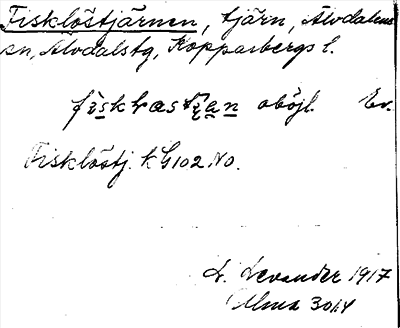 Fisklöstjärnen, tjärn, Älvdalens
sn, Älvdalstg, Kopparbergs l.
oböjl. Ev.
Fisklöstj. k G102 No.
L. Levander 1917
Alma 3014